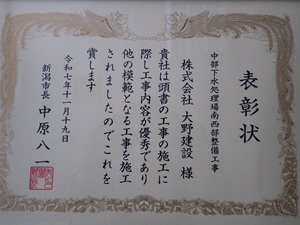 表彰状
中部下水処理場南西部整備工事
株式会社 大野建設 様
貴社は頭書の工事の施工に
際し工事内容が優秀であり
他の模範となる工事を施工
されましたのでこれを
賞します
令和七年十一月十九日
新潟市長 中原八一